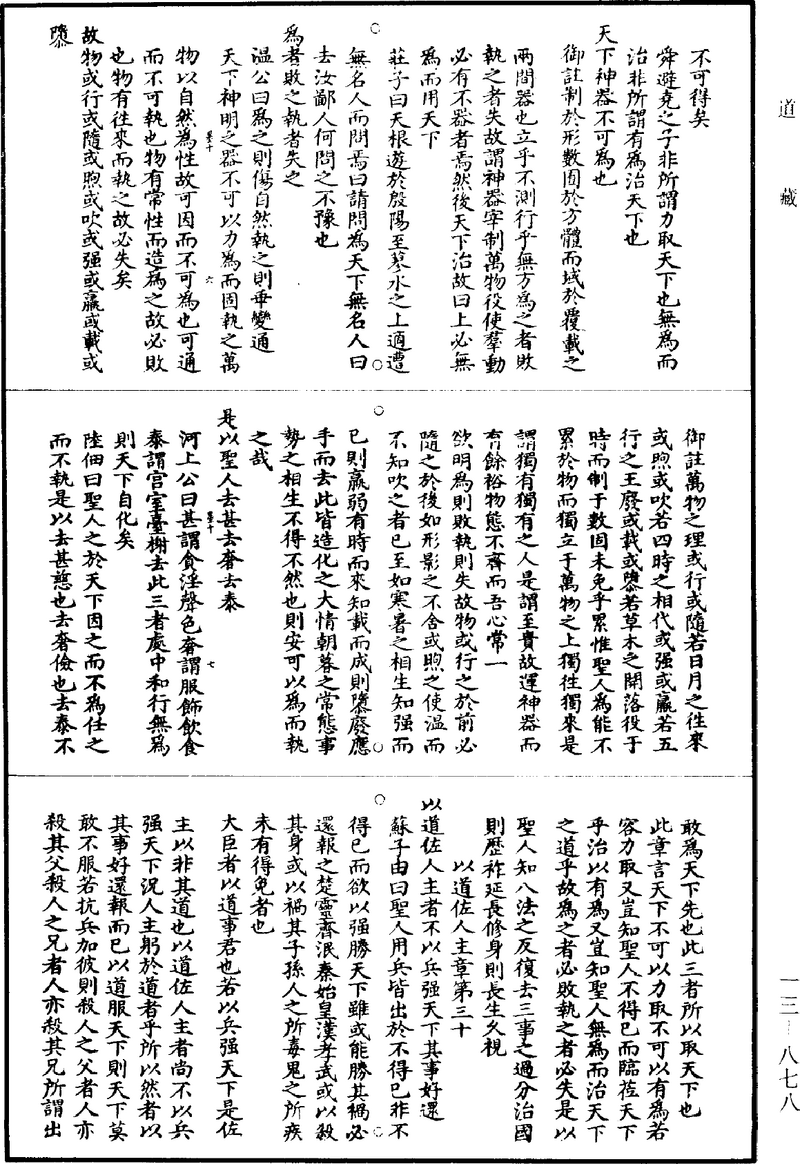 道藏
不可得矣
舜避堯之子非所謂力取天下也無為而
治非所謂有為治天下也
天下神器不可為也
御註制於形數囿於方體而域於覆載之
兩間器也立乎不測行乎無方為之者敗
執之者失故謂神器宰制萬物役使羣動
必有不器者焉然後天下治故曰上必無
為而用天下
莊子曰天根遊於殷陽至蓼水之上適遭
無名人而問焉曰請問為天下無名人曰
去汝鄙人何問之不豫也
為者敗之執者失之
温公曰為之則傷自然執之則乖變通
天下神明之器不可以力為而固執之萬
物以自然為性故可因而不可為也可通
而不可執也物有常性而造為之故必敗
也物有往來而執之故必失矣
故物或行或隨或煦或吹或强或羸或載或
隳
御註萬物之理或行或隨若日月之往來
或煦或吹若四時之相代或强或羸若五
行之王廢或載或隳若草木之開落役于
時而制于數固未免乎累惟聖人為能不
累於物而獨立于萬物之上獨往獨來是
謂獨有獨有之人是謂至貴故運神器而
有餘裕物態不齊而吾心常一
欲明為則敗執則失故物或行之於前必
隨之於後如形影之不舍或煦之使温而
不知吹之者已至如寒暑之相生知强而
已則羸弱有時而來知載而成則隳廢應
手而去此皆造化之大情朝暮之常態事
勢之相生不得不然也則安可以為而執
之哉
是以聖人去甚去奢去泰
河上公曰甚謂貪淫聲色奢謂服飾飲食
泰謂宫室臺榭去此三者處中和行無為
則天下自化矣
陸佃曰聖人之於天下因之而不為任之
而不執是以去甚慈也去奢儉也去泰不
敢為天下先也此三者所以取天下也
此章言天下不可以力取不可以有為若
容力取又豈知聖人不得已而臨莅天下
乎治以有為又豈知聖人無為而治天下
之道乎故為之者必敗執之者必失是以
聖人知八法之反復去三事之過分治國
則歷祚延長修身則長生久視
以道佐人主章第三十
以道佐人主者不以兵强天下其事好還
蘇子由曰聖人用兵皆出於不得已非不
得已而欲以强勝天下雖或能勝其禍必
還報之楚靈齊泯秦始皇漢孝武或以殺
其身或以禍其子孫人之所毒鬼之所疾
未有得免者也
大臣者以道事君也若以兵强天下是佐
主以非其道也以道佐人主者尚不以兵
强天下況人主躬於道者乎所以然者以
其事好還報而已以道服天下則天下莫
敢不服若抗兵加彼則殺人之父者人亦
殺其父殺人之兄者人亦殺其兄所謂出
一三—八七八